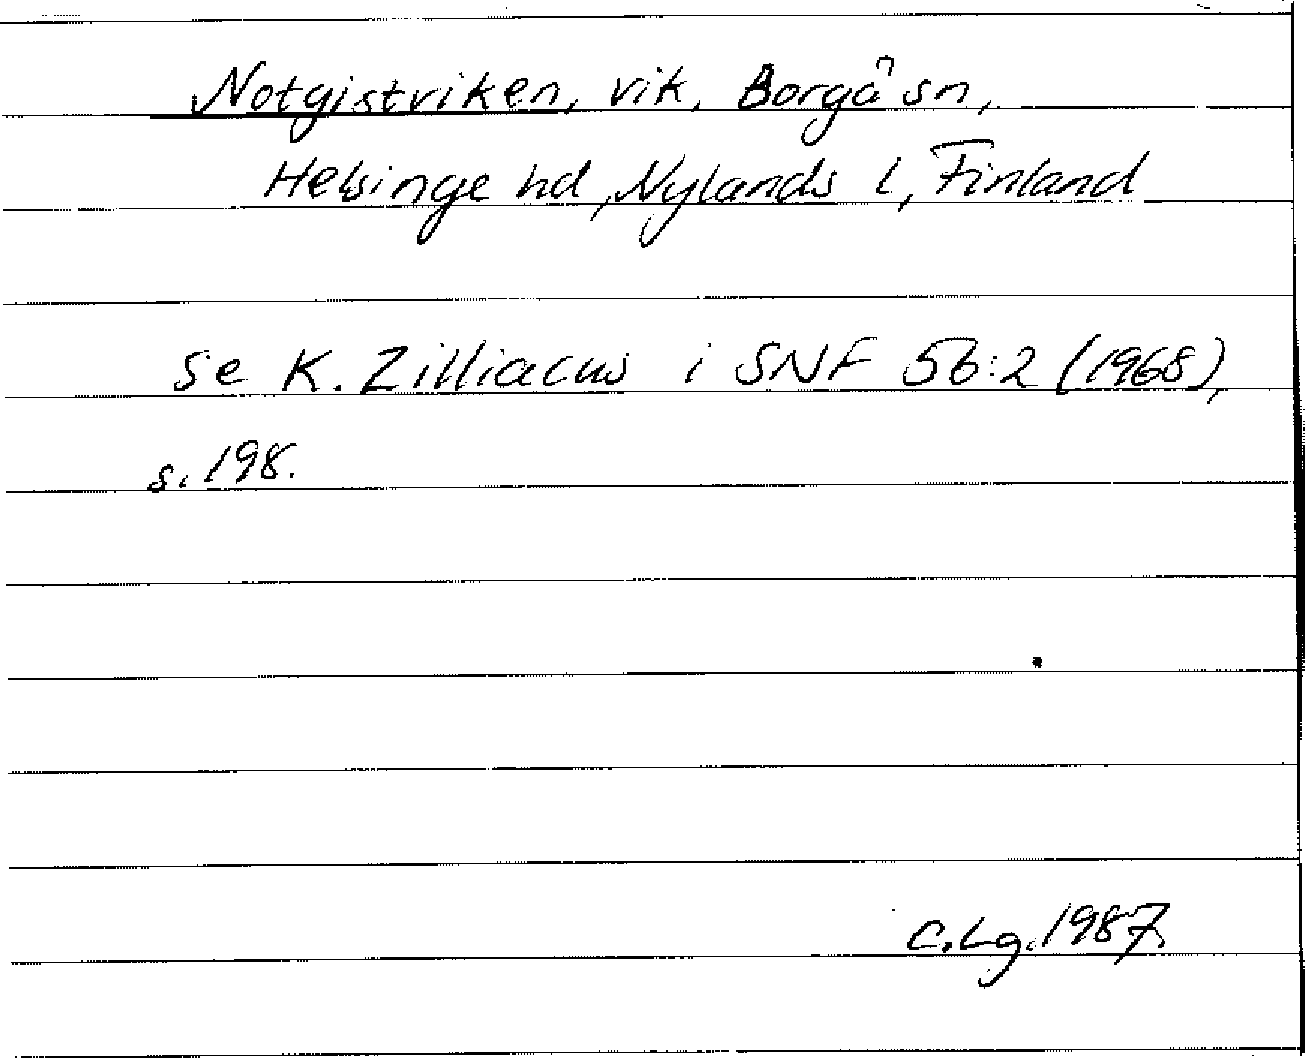 Notgistviken, vik, Borgå sn,
Helsinge hd, Nylands l, Finland
Se K. Zilliacus i SNF 56:2 (1968),
s. 198.
C.Lg. 1987